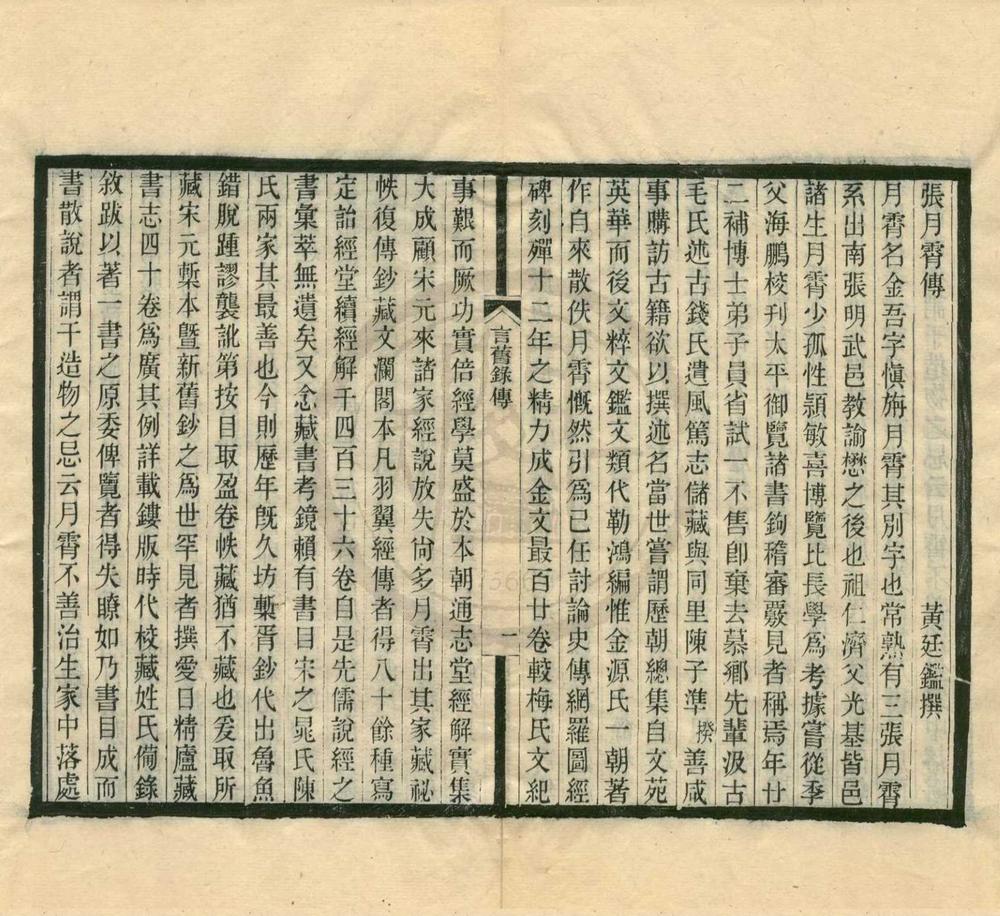 張月霄傳
黃廷鑑撰
月霄名金吾字愼旃月霄其別字也常熟有三張月霄
系出南張明武邑教諭懋之後也祖仁濟父光基皆邑
諸生月霄少孤性頴敏喜博覽比長學爲考據嘗從季
父海鵬校刊太平御覽諸書鉤稽審覈見者稱焉年廿
二補博士弟子員省試一不售卽棄去慕鄉先輩汲古
毛氏述古錢氏遺風篤志儲藏與同里陳子準揆善咸
事購訪古籍欲以撰述名當世嘗謂歷朝總集自文苑
英華而後文粹文鑑文類代勒鴻編惟金源氏一朝著
作自來散佚月霄慨然引爲己任討論史傳網羅圖經
碑刻殫十二年之精力成金文最百廿卷較梅氏文紀
言舊錄傳
一
事艱而厥功實倍經學莫盛於本朝通志堂經解實集
大成顧宋元來諸家經說放失尙多月霄出其家藏祕
帙復傳鈔藏文瀾閣本凡羽翼經傳者得八十餘種寫
定詒經堂續經解千四百三十六卷自是先儒說經之
書彙萃無遺矣又念藏書考鏡賴有書目宋之晁氏陳
氏兩家其最善也今則歷年旣久坊槧胥鈔代出魯魚
錯脫踵謬襲訛第按目取盈卷帙藏猶不藏也爰取所
藏宋元槧本曁新舊鈔之爲世罕見者撰愛日精廬藏
書志四十卷爲廣其例詳載鏤版時代校藏姓氏備錄
敘跋以著一書之原委俾覽者得失瞭如乃書目成而
書散說者謂干造物之忌云月霄不善治生家中落處